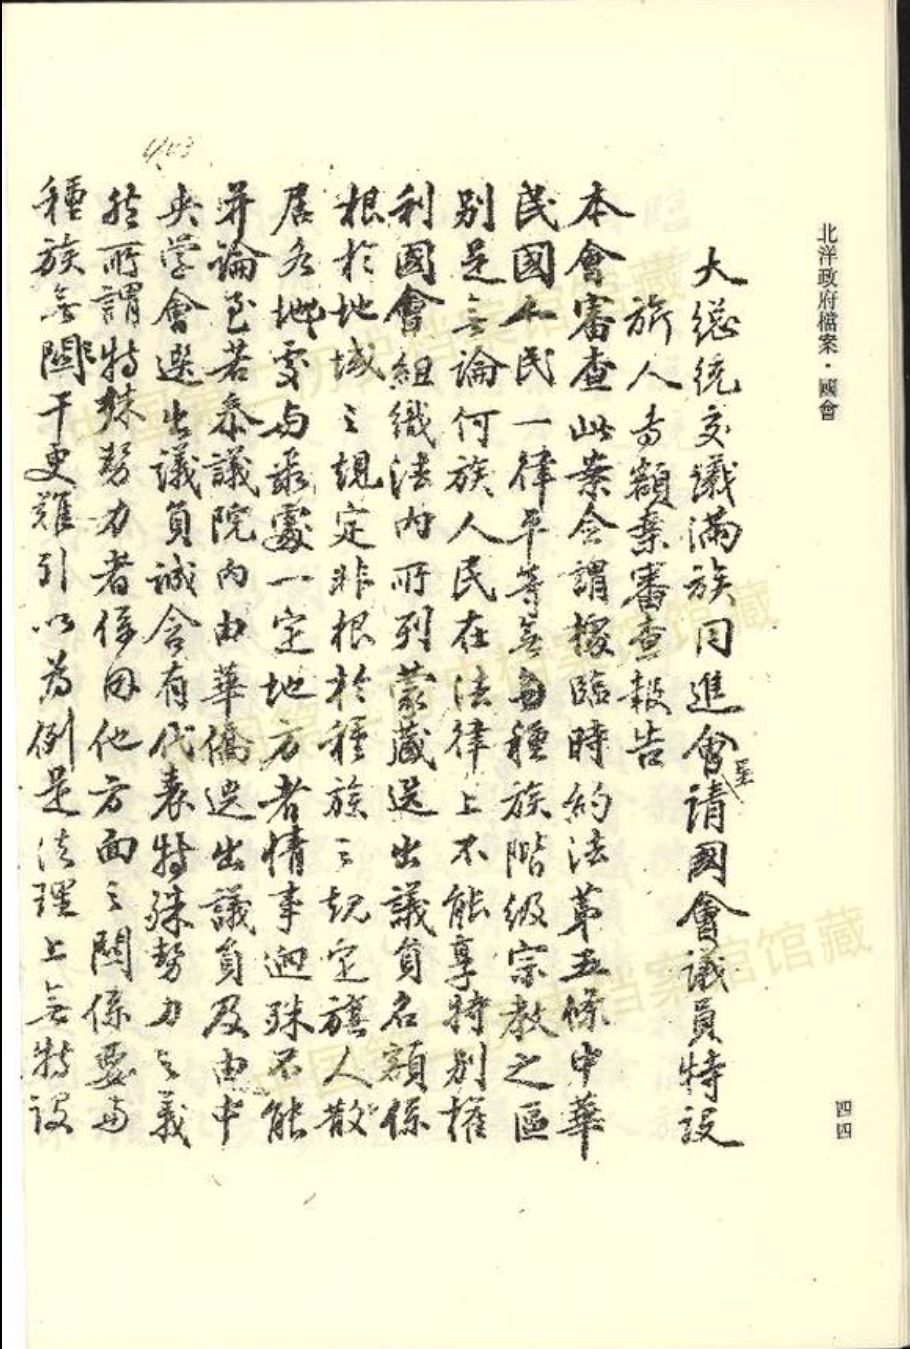 北洋政府檔案・國會
四四
大總統交議滿族同進會呈請國會議員特設
旂人專額案審查報告
本會審查此案僉謂據臨時約法第五條中華
民國人民一律平等無種族階級宗教之區
別是無論何族人民在法律上不能享特別權
利國會組織法內所列蒙藏選出議員名額係
根於地域之規定非根於種族之規定旗人散
居各地處与聚處一定地方者情事迥殊不能
并論至若參議院內由華僑選出議員及由中
央学會選出議員誠含有代表特殊勢力之義
然所謂特殊勢力者係因他方面之關係要与
種族無關干更難引以為例是法理上無特設